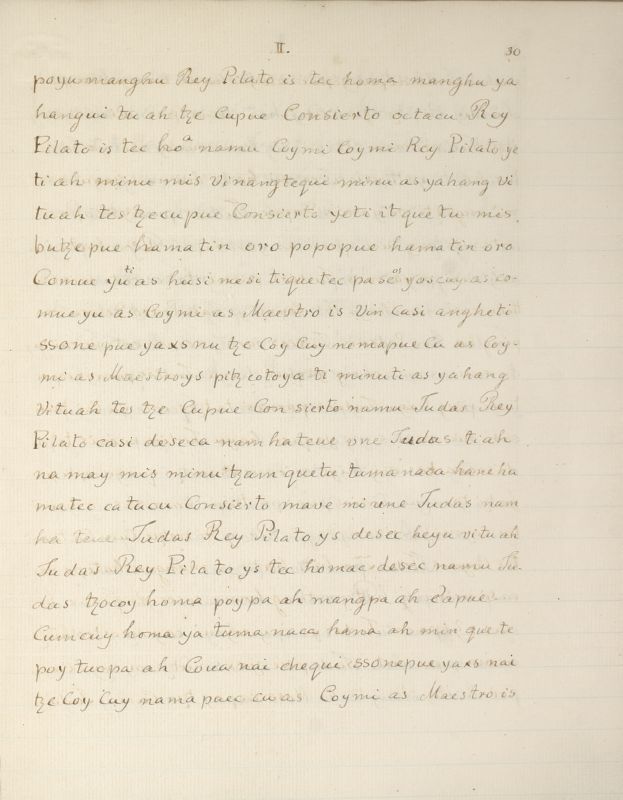 II.
30
poyu manghu Rey Pilato is tec homa manghu ya
hangui tu ah tze Cupue Consierto octacu Rey
Pilato is tec hoa namu Coymi Coymi Rey Pilato ye
ti ah minu mis vinangtequi minu as yahang vi
tu ah tes tzecupue Consierto yeti it que tu mis
butzepue hamatin oro popopue hamatin oro
Comue yuti as husi mesi tique tec pa seos yoscuy as co-
mue yu as Coymi as Maestro is Vin casi angheti
ssone pue yaxs nu tze Coy Cuy nemapue Cu as Coy-
mi as Maestro ys pitzcotoya ti minuti as yahang
Vituah tes tze Cupue Con sierto namu Judas Rey
Pilato casi deseca nam hateue vne Judas tiah
na may mis minu tzam quetu tuma naca hane ha
matec catacu Consierto maue mi une Judas nam
ha teue Judas Rey Pilato ys desec heyu vituah
Judas Rey Pilato ys tec homae desec namu Ju-
das tzocoy homa poypa ah mangpa ah
Cumcuy homa ya tuma naca hana ah min que te
poy tucpa ah Coua nai chequi ssonepue yaxs nai
tze Coy Cuy nama paec cu as Coymi as Maestro is